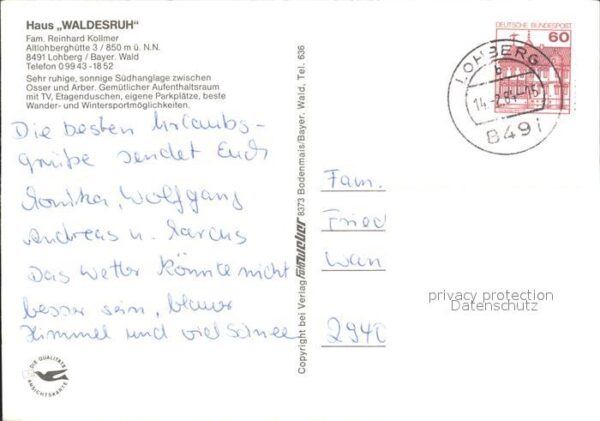 Haus „WALDESRUH"
Fam. Reinhard Kollmer
Altlohberghütte 3 / 850 m ü. N.N.
8491 Lohberg / Bayer. Wald
Telefon 0 99 43 - 18 52
Sehr ruhige, sonnige Südhanglage zwischen
Osser und Arber. Gemütlicher Aufenthaltsraum
mit TV, Etagenduschen, eigene Parkplätze, beste
Wander- und Wintersportmöglichkeiten.
Die besten Urlaubs-
grüße sendet Euch
Monika, Wolfgang
Andreas u. Marcus
Das Wetter könnte nicht
besser sein, blauer
Himmel und viel Schnee
DIE QUALITÄTS
ANSICHTSKARTE
Copyright bei Verlag Foto Weber 8373 Bodenmais/Bayer. Wald. Tel. 636
DEUTSCHE BUNDESPOST
60
LOHBERG
b
8491
Fam.
Fried
Wan
2940
privacy protection
Datenschutz